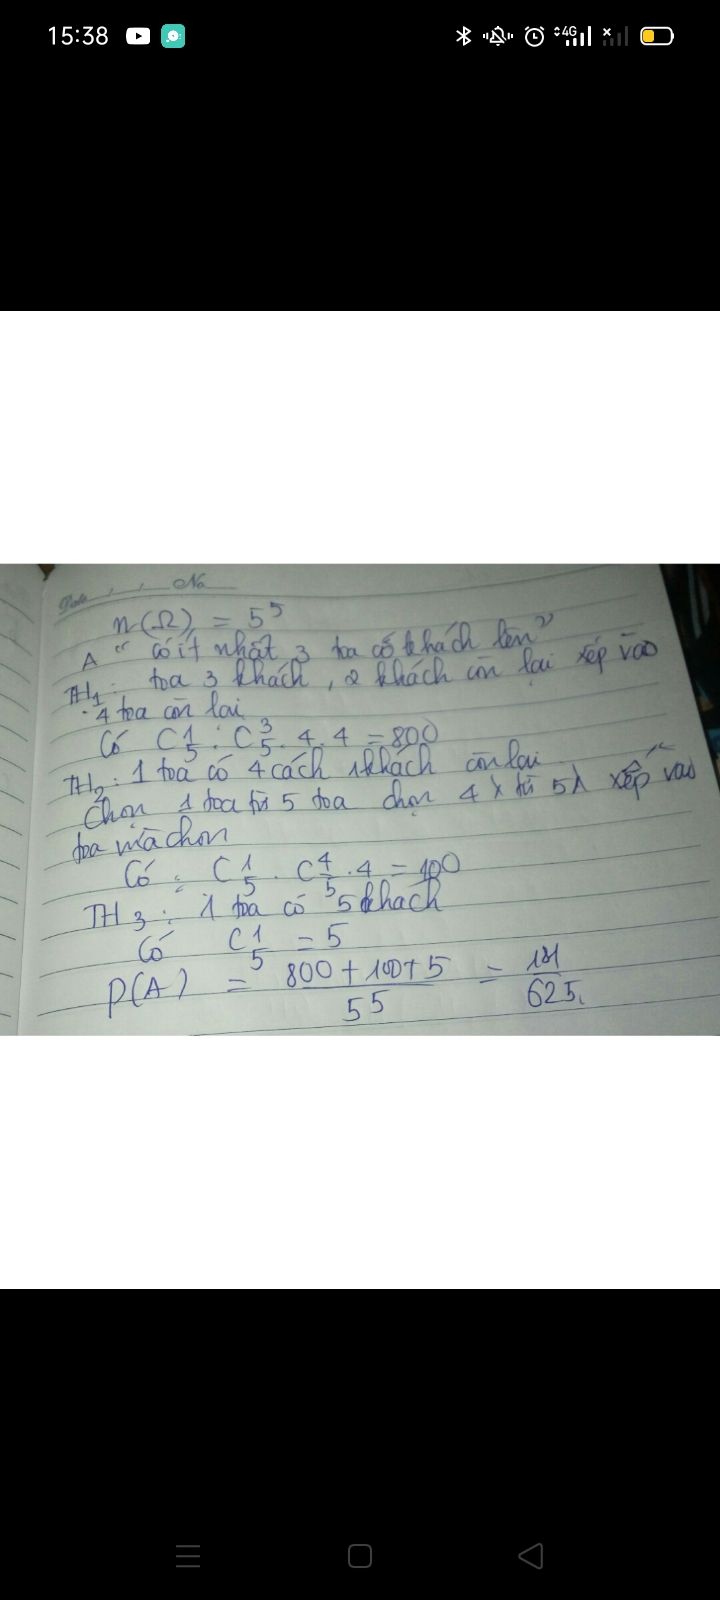 15:38
4G
Date . , , No
n(Ω) = 5⁵
A " có ít nhất 3 toa có khách lên"
TH1: toa 3 khách, 2 khách còn lại xếp vào
4 toa còn lại
Có C¹₅ . C³₅ . 4 . 4 = 800
TH2: 1 toa có 4 cách 1 khách còn lại
Chọn 1 toa từ 5 toa chọn 4 từ 5 xếp vào
toa mà chọn
Có : C¹₅ . C⁴₅ . 4 = 100
TH3: 1 toa có 5 khách
Có C¹₅ = 5
P(A) = 800 + 100 + 5 / 5⁵ = 181 / 625.